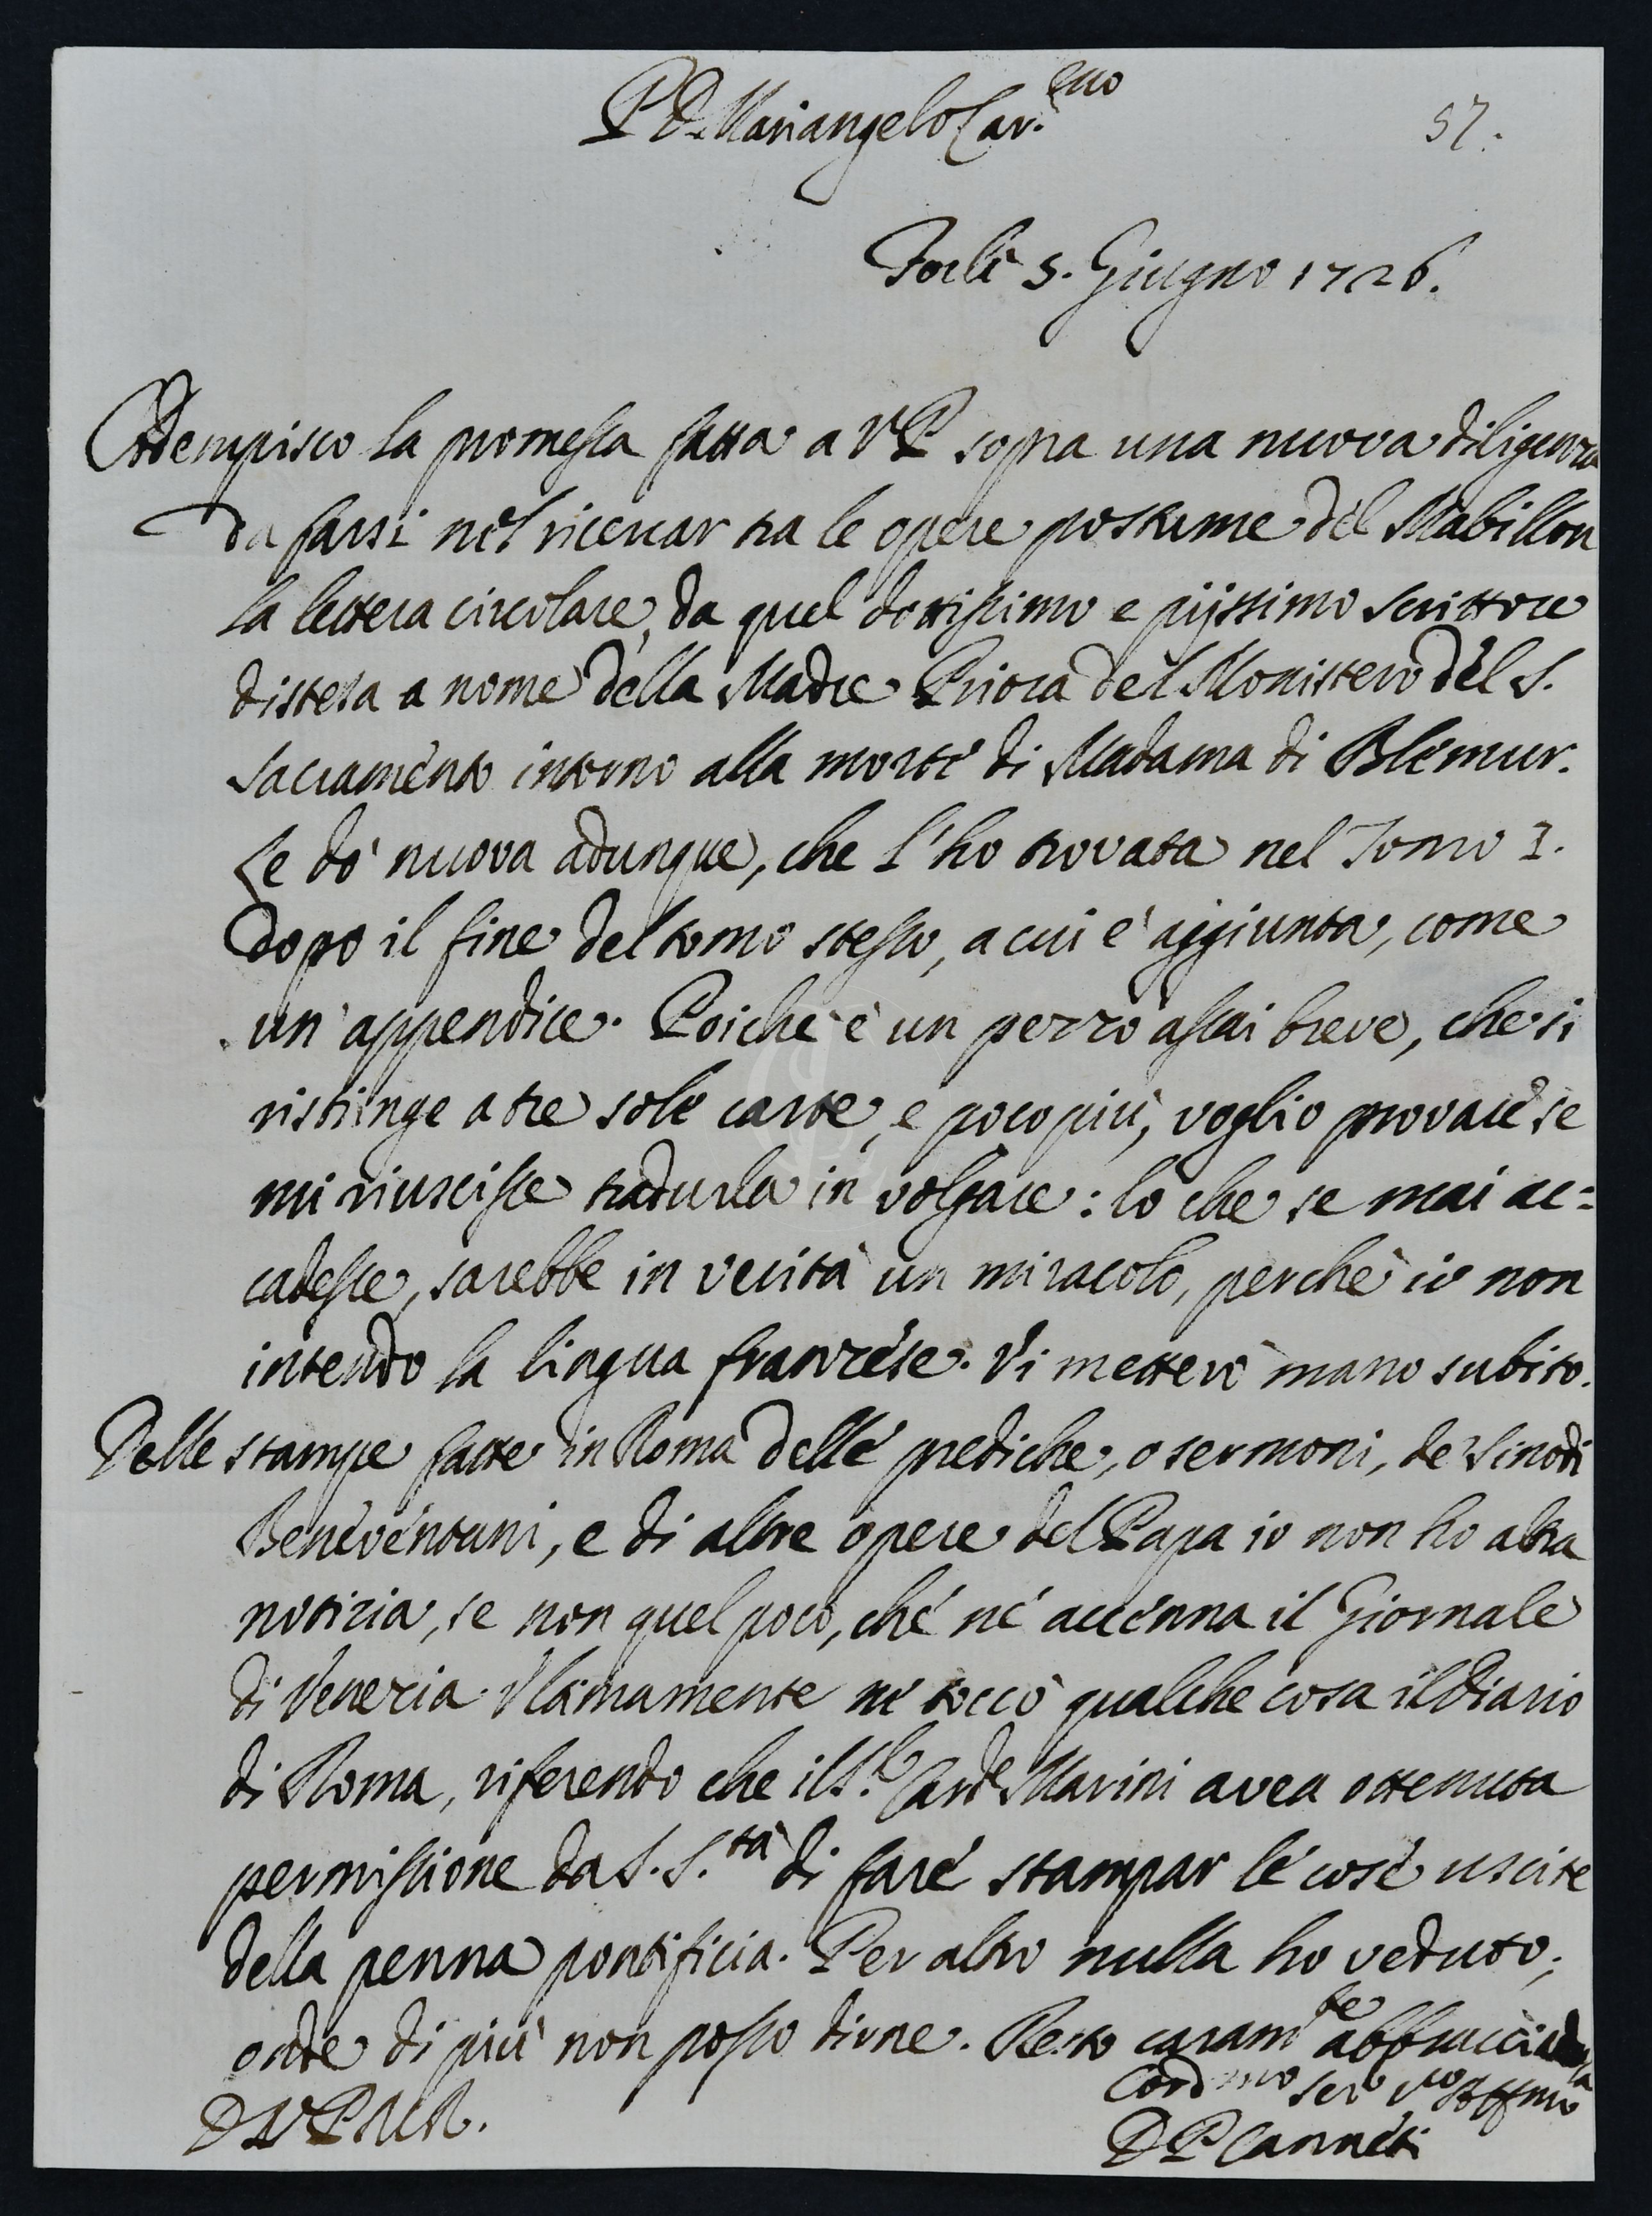 P D Mariangelo Car.mo
57.
Forlì 5. Giugno 1726.
Adempisco la promessa fatta a V P sopra una nuova diligenza
da farsi nel ricercar tra le opere postume del Mabillon
la lettera circolare, da quel dottissimo e pijssimo scrittore
distesa a nome della Madre Priora del Monistero del S.
Sacramento intorno alla morte di Madama di Blémur.
Le dò nuova adunque, che l'ho trovata nel Tomo I.
dopo il fine del tomo stesso, a cui è aggiunta, come
un'appendice. Poichè è un pezzo assai breve, che si
ristringe a tre sole carte, e poco più, voglio provare se
mi riuscisse tradurla in volgare: lo che se mai ac=
cadesse, sarebbe in verità un miracolo, perchè io non
intendo la lingua franzese. Vi metterò mano subito.
Delle stampe fatte in Roma delle prediche, o sermoni, de' Sinodi
Beneventani, e di altre opere del Papa io non ho altra
notizia, se non quel poco, che ne accenna il Giornale
di Venezia. Ultimamente ne toccò qualche cosa il Diario
di Roma, riferendo che il S.r Card.e Marini avea ottenuta
permissione da S. S.tà di fare stampar le cose uscite
della penna pontificia. Per altro nulla ho veduto;
onde di più non posso dirne. Resto caram.te abbracciandola
D V P M R.
Cord.mo ser.e
D P Canneti